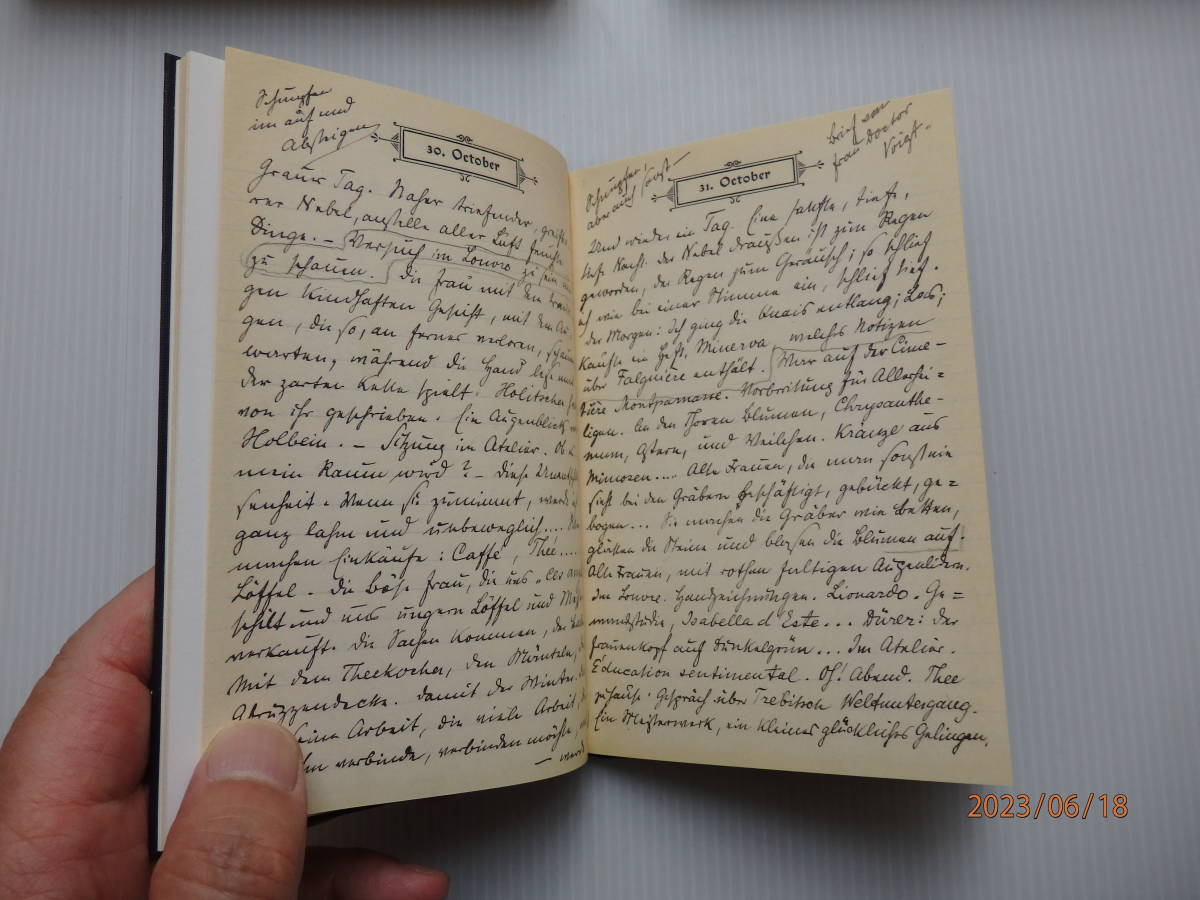 Schnupfen
im auf und
Absteigen
30. October
Grauer Tag. Naher triefender,
rer Nebel, anstelle aller Luft feuchte
Dinge. – Versuch im Louvre zu sein
zu schauen. Die Frau mit dem
gen kindhaften Gesicht, mit den Au
gen, die so, an fernes verloren, schauen
warten, während die Hand leise
der zarten Kette spielt. Holitscher
von ihr geschrieben. Ein Augenblick
Holbein. – Sitzung im Atelier. Ob
mein Raum wird? – Diese
senheit. Wenn sie zunimmt, werde
ganz lahm und unbeweglich....
machen Einkäufe: Caffé, Thée....
Löffel. Die böse Frau, die uns
schilt und uns ungern Löffel und
verkauft. Die Sachen kommen, der
mit dem Theekocher, den Mänteln,
Abruzzendecke. Damit der Winter.
eine Arbeit, die viele Arbeit,
verbinde, verbinden möchte,
– werd
Schnupfen,
aber auch sonst –
31. October
Brief von
Frau Doctor
Voigt.
Und wieder ein Tag. Eine sachte, tiefe,
tiefe Nacht. Der Nebel draußen ist zum Regen
geworden, der Regen zum Geräusch; so schlief
ich wie bei einer Stimme ein, schlief tief.
Der Morgen: Ich ging die Quais entlang; las;
kaufte ein Heft, Minerva welches Notizen
über Falguière enthält. War auf der Cime=
tière Montparnasse. Vorbereitung für Allerhei=
ligen. An den Thoren Blumen, Chrysanthe=
mum, Astern, und Veilchen. Kränze aus
Mimosen.... Alte Frauen, die man sonst nie
sieht bei den Gräbern beschäftigt, gebückt, ge=
bogen... Sie machen die Gräber wie Betten,
glätten die Steine und blasen die Blumen auf.
Alte Frauen, mit rothen faltigen Augenlidern.
Im Louvre. Handzeichnungen. Lionardo. Ge=
wandstudie, Isabella d'Este... Dürer: der
Frauenkopf auf Dunkelgrün... Im Atelier.
Éducation sentimental. Oh! Abend. Thee
zuhause. Gespräch über Trebitsch Weltuntergang.
Ein Meisterwerk, ein kleines glückliches Gelingen.
2023/06/18